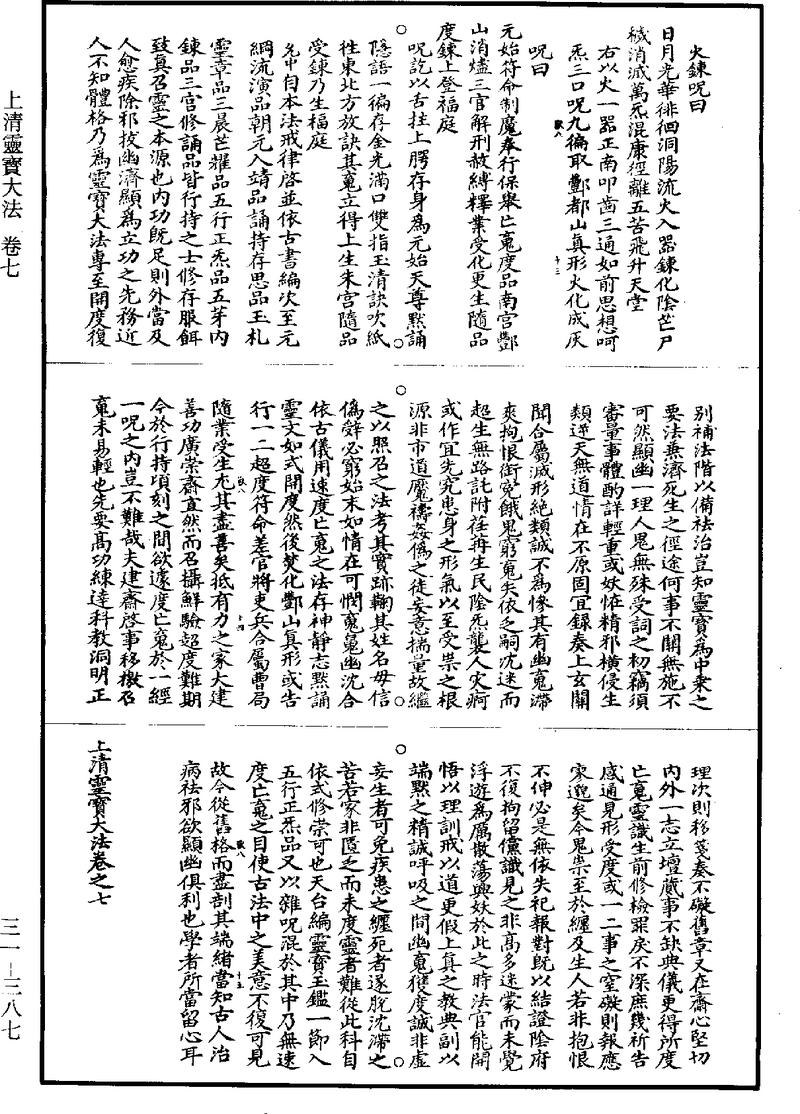 上清靈寶大法　卷七
三一-三八七
火鍊呪曰
日月光華徘徊洞陽流火入噐鍊化陰芒尸
穢消滅萬炁混康徑離五苦飛升天堂
右以火一噐正南叩齒三通如前思想呵
炁三口呪九徧取酆都山真形火化成灰
呪曰
元始符命制魔奉行保舉亡䰟度品南宮酆
山消爐三官解刑赦縛釋業受化更生隨品
度鍊上登福庭
呪訖以舌拄上腭存身為元始天尊默誦
隱語一徧存金光滿口雙指玉清訣吹紙
徃東北方放訣其䰟立得上生朱宮隨品
受鍊乃生福庭
先中自本法戒律啓並依古書編次至元
綱流演品朝元入靖品誦持存思品玉札
靈章品三晨芒耀品五行正炁品五芽內
鍊品三官修誦品皆行持之士修存服餌
致真召靈之本源也內功旣足則外當及
人愈疾除邪拔幽濟顯為立功之先務近
人不知體格乃為靈寶大法專至開度復
别補法階以備祛治豈知靈寶為中乗之
要法兼濟死生之徑途何事不關無施不
可然顯幽一理人鬼無殊受詞之初竊須
審量事體酌詳輕重或妖怪精邪橫侵生
類逆天無道情在不原固冝錄奏上玄關
聞合屬滅形絕類誠不為慘其有幽䰟滯
爽拘恨銜寃餓鬼窮䰟失依乏嗣沈迷而
超生無路託附荏苒生民陰炁襲人灾痾
或作宜先究患身之形氣以至受祟之根
源非市道魘禱姦偽之徒妄意揣量故繼
之以照召之法考其實跡鞫其姓名毋信
偽辝必窮始末如情在可憫䰟臮幽沈合
依古儀用速度亡䰟之法存神静志默誦
靈文如式開度然後焚化酆山真形或告
行一二超度符命差官將吏兵合屬曹局
隨業受生尤其盡善矣袛有力之家大建
善功廣崇齋直然而召攝鮮驗超度難期
今於行持頃刻之間欲遽度亡䰟於一經
一呪之內豈不難哉夫建齋啓事移檄召
䰟未易輕也先要高功練達科教洞明正
理次則移箋奏不礙舊章又在齋心堅切
內外一志立壇蕆事不缺典儀更得所度
亡䰟靈識生前修檢罪戾不深庶幾祈告
感通見形受度或一二事之窒礙則報應
家迎矣今鬼祟至於纏及生人若非抱恨
不伸必是無依失祀報對既以結證陰府
不復拘留儻識見之非高多迷蒙而未覺
浮遊為厲散蕩興妖於此之時法官能開
悟以理訓戒以道更假上真之教典副以
端默之精誠呼吸之間幽䰟獲度誠非虛
妄生者可免疾患之纏死者遂脫沈滯之
苦若家非匱乏而未度靈者難從此科自
依式修崇可也天台編靈寶玉鑑一節入
五行正炁品又以雜呪混於其中乃無速
度亡䰟之目使古法中之美意不復可見
故今從舊格而盡剖其端緒當知古人治
病祛邪欲顯幽俱利也學者所當留心耳
上清靈寶大法卷之七